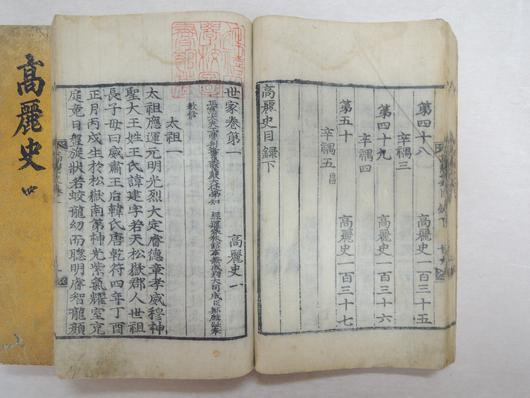 第四十八 高麗史一百三十五
辛禑三
第四十九 高麗史一百三十六
辛禑四
第五十 高麗史一百三十七
辛禑五
高麗史目録下
世家卷第一 高麗史一
教修
太祖一
太祖應運元明光烈大定睿德章孝威穆神
聖大王姓王氏諱建字若天松嶽郡人世祖
長子母曰威肅王后韓氏唐乾符四年丁酉
正月丙戌生於松嶽南第神光紫氣耀室充
庭竟日盤旋狀若蛟龍幼而聰明睿智龍顔
高麗史 四